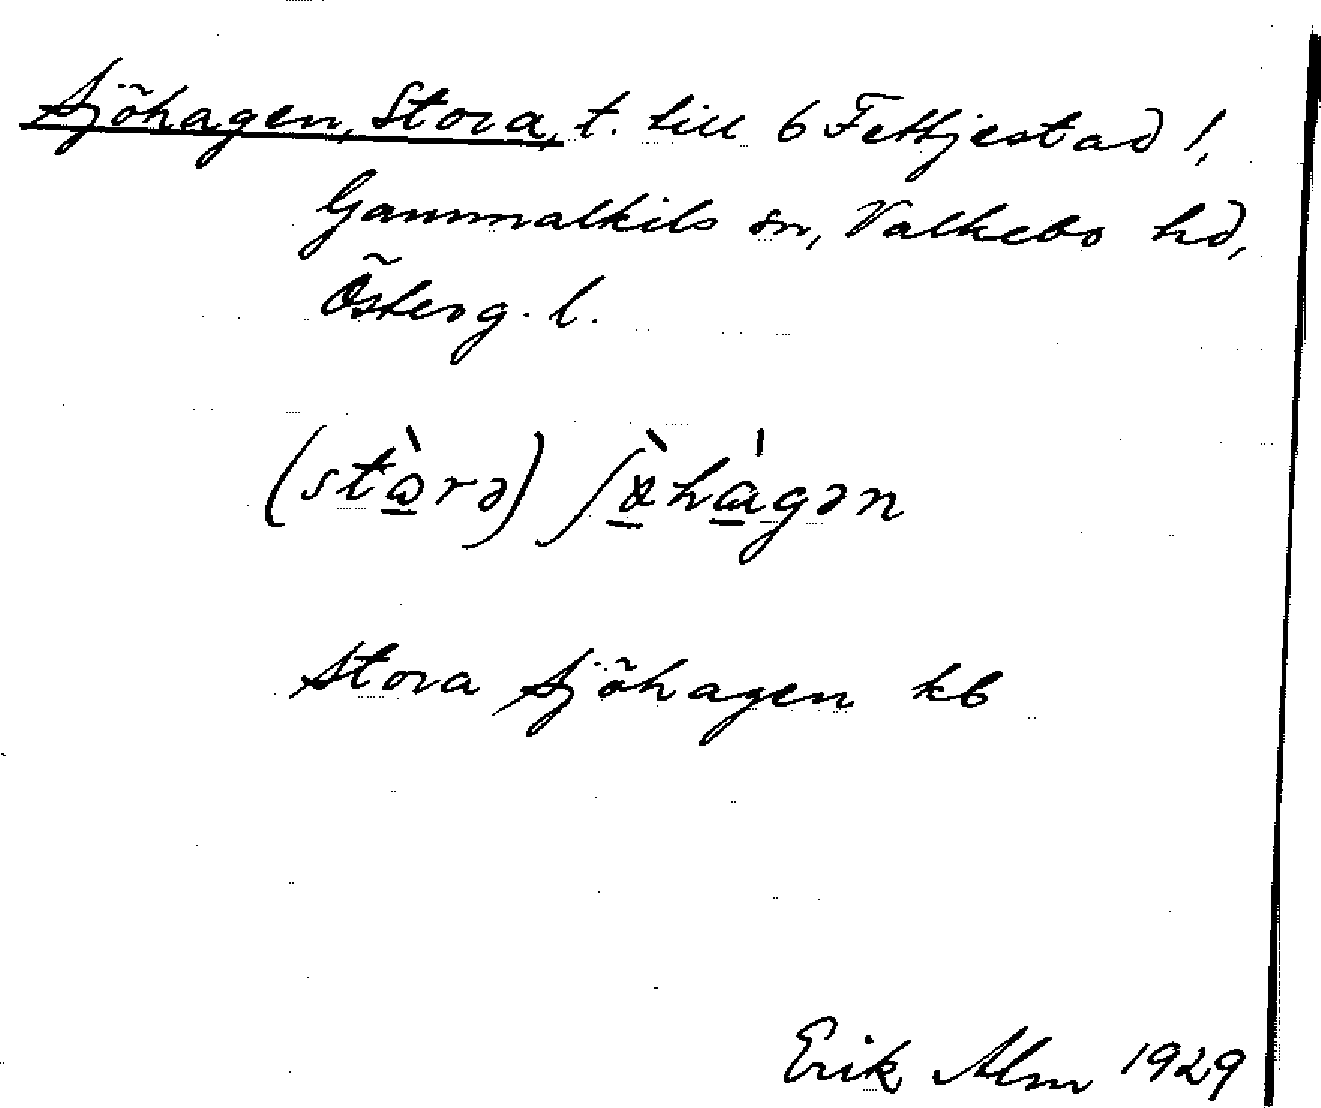 Sjöhagen, Stora, t. till 6 Fettjestad 1,
Gammalkils sn, Valkebo hd,
Österg. l.
(stɷ̱̀rə) ʃɤ̱̀hɑ̱̀gən
Stora Sjöhagen kb
Erik Alm 1929